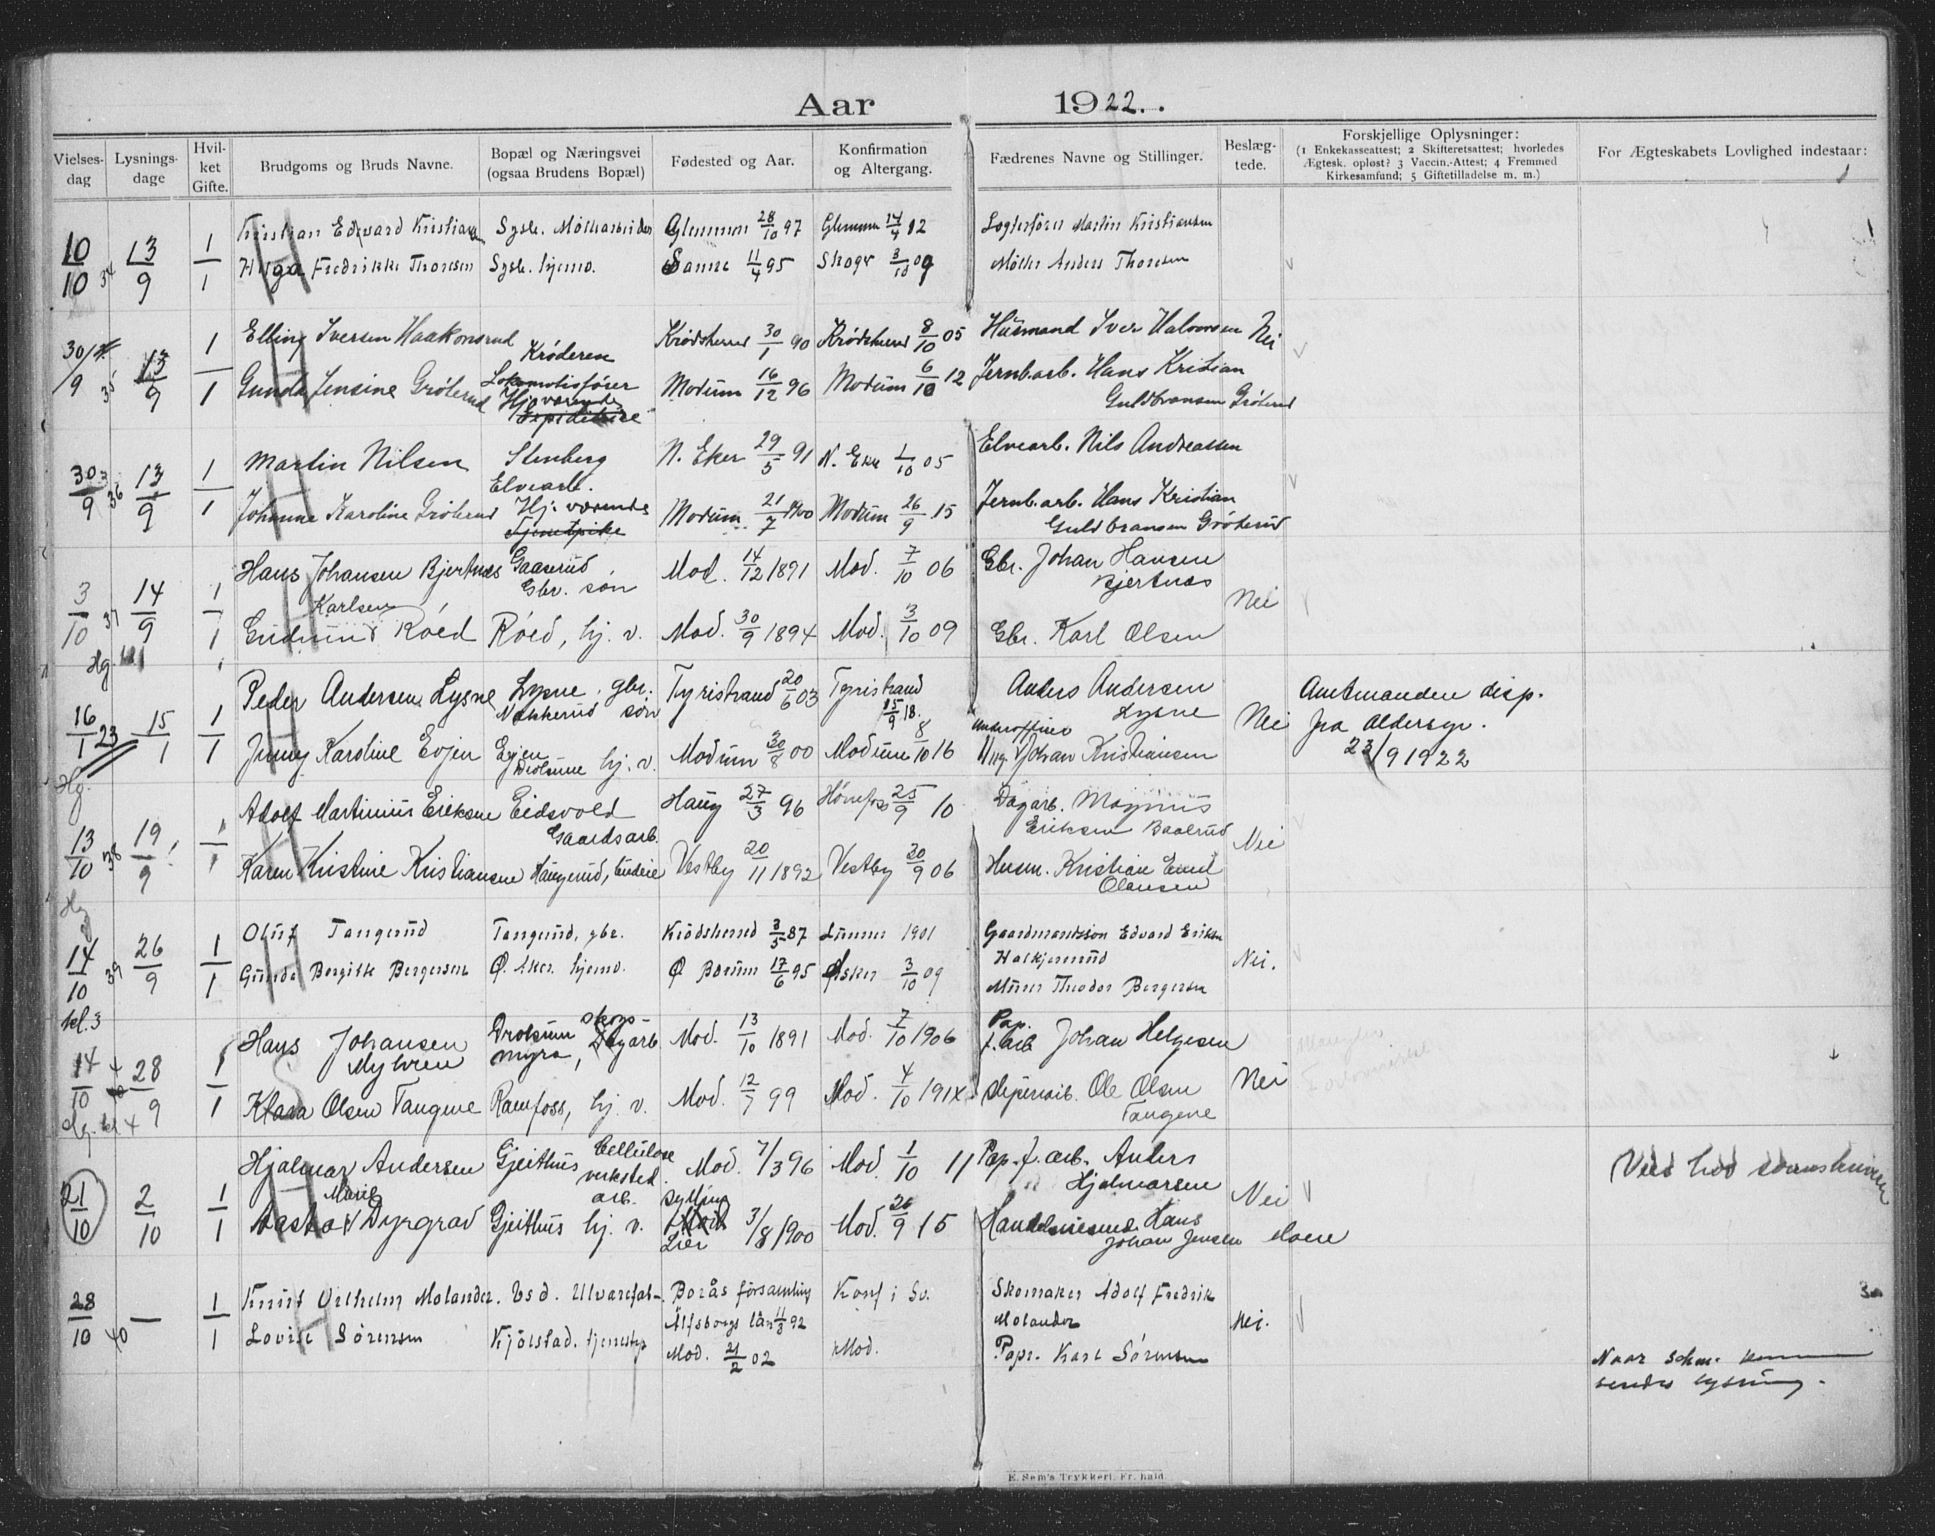 Aar 1922.
Vielses-dag
Lysnings-dage
Hvil-ket Gifte.
Brudgoms og Bruds Navne.
Bopæl og Næringsvei (ogsaa Brudens Bopæl)
Fødested og Aar.
Konfirmation og Altergang.
Fædrenes Navne og Stillinger.
Beslæg-tede.
Forskjellige Oplysninger:
(1 Enkekasseattest; 2 Skifteretsattest; hvorledes
Ægtesk. opløst? 3 Vaccin.-Attest; 4 Fremmed
Kirkesamfund; 5 Giftetilladelse m. m.)
For Ægteskabets Lovlighed indestaar:
10/10 34 13/9 1/1
Kristian Edvard Kristiansen Sysle. Glemmen 28/10 97 Glemmen 14/4 12 Martin Kristiansen
Helga Fredrikke Thoresen Sysle. hjemv. Sanne 11/4 95 Skoger 3/10 09 Møller Anders Thoresen
30/9 35 13/9 1/1
Elling Iversen Haakonsrud Krøderen Krødsherred 30/1 90 Krødsherred 8/10 05 Husmand Iver Halvorsen Nei
Gunda Jensine Grøterud Lokomotivfører Modum 16/12 96 Modum 6/10 12 Jernb.arb. Hans Kristian
Hj. værende Guldbransen Grøterud
30/9 36 13/9 1/1
Martin Nilsen Stenberg N. Eker 29/5 91 N. Eker 1/10 05 Elvearb. Nils Andreassen
Elvearb.
Johanne Karoline Grøterud Hj. værende Modum 21/7 1900 Modum 26/9 15 Jernb.arb. Hans Kristian
Tjenestpike Guldbransen Grøterud
3/10 37 14/9 1/1
Hans Johansen Bjertnæs Gaaserud Mod. 14/12 1891 Mod. 7/10 06 Gbr. Johan Hansen
Gbr. søn Bjertnæs
Karlsen Nei
Gudrun Røed Røed, hj. v. Mod. 30/9 1894 Mod. 3/10 09 Gbr. Karl Olsen
16/1 23 15/1 1/1
Peder Andersen Lysne Lysne, gbr. Tyristrand 20/6 03 Tyristrand Anders Andersen Amtmanden disp.
Nakkerud søn 15/9 18. Lysne Nei fra aldersgr.
Jenny Karoline Evjen Evjen hj. v. Modum 30/8 00 Modum 8/10 16 underoffiser Johan Kristiansen 23/9 1922
Hg.
13/10 38 19/9 1/1
Adolf Martinius Eriksen Eidsvold Haug 27/3 96 Hønefos 25/9 10 Dagarb. Magnus
Gaardsarb. Eriksen Baalerud Nei
Karen Kristine Kristiansen Haugerud, budeie Vestby 20/11 1892 Vestby 30/9 06 Husm. Kristian Emil
Olausen
14/10 39 26/9 1/1
Oluf Tangerud Tangerud, gbr. Krødsherred 3/5 87 Lunner 1901 Gaardmandssøn Edvard Eriksen
Nei.
Gunda Bergitte Bergersen Ø. Aker. hjemv. Ø. Bærum 17/6 95 Asker 3/10 09 Murer Theodor Bergersen
kl. 3
14/10 28/9 1/1
Hans Johansen Drolsum skogs- Mod. 13/10 1891 Mod. 7/10 1906 Pap. f. arb Johan Helgesen
Myhren myra, Dagarb Nei
Klara Olsen Tangene Ramfoss, hj. v. Mod. 12/7 99 Mod. 4/10 1914 Ole Olsen
Tangene
21/10 2/10 1/1
Hjalmar Andersen Gjeithus Cellulose Mod. 7/3 96 Mod. 1/10 11 Pap. f. arb. Anders
verksted. arb. Hjalmarsen Nei
Marie
Aasta Dyrgrad Gjeithus hj. v. Sylling Lier 3/8 1900 Mod. 26/9 15 Hans
Johan Jensen Moen
28/10 40 — 1/1
Knut Vilhelm Molander. Borås församling Konf i Sv. Skomaker Adolf Fredrik
Älfsborgs län 11/3 92 Molander Nei.
Lovise Sørensen Kjølstad. tjenestep Mod. 21/2 02 Mod. Papr. Karl Sørensen
Naar
sendes lysning.
E. Sem's Trykkeri, Fr.hald